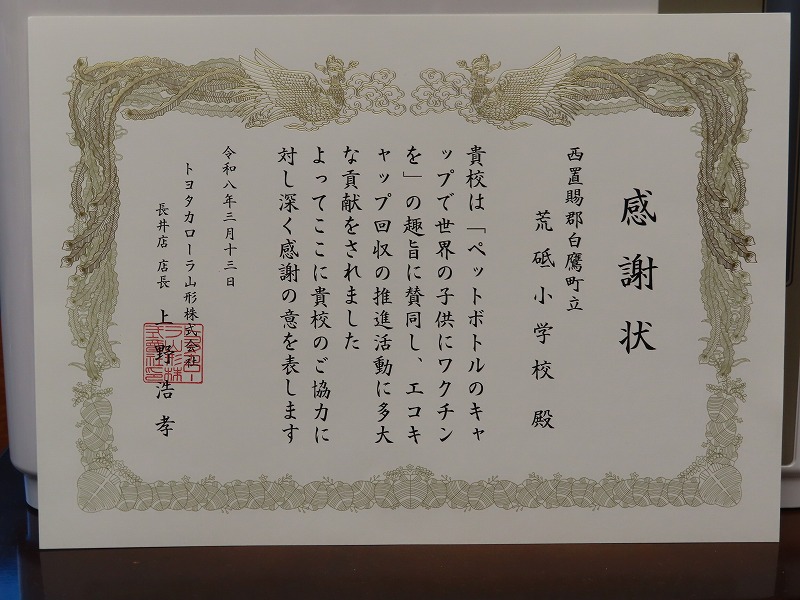 感謝状
西置賜郡白鷹町立
荒砥小学校 殿
貴校は「ペットボトルのキャ
ップで世界の子供にワクチン
を」の趣旨に賛同し、エコキ
ャップ回収の推進活動に多大
な貢献をされました
よってここに貴校のご協力に
対し深く感謝の意を表します
令和八年三月十三日
トヨタカローラ山形株式会社
長井店 店長 上野浩孝